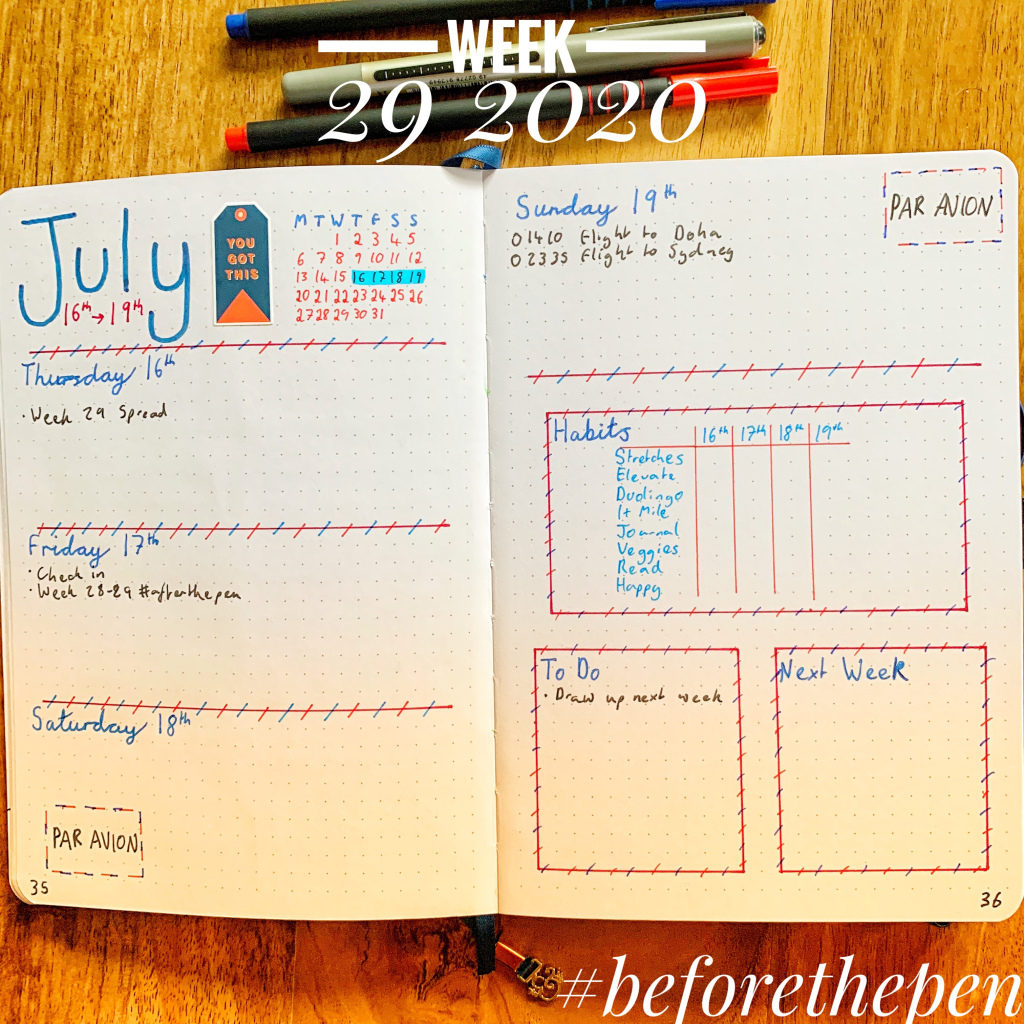 WEEK
29 2020
July
16th → 19th
YOU
GOT
THIS
M T W T F S S
1 2 3 4 5
6 7 8 9 10 11 12
13 14 15 16 17 18 19
20 21 22 23 24 25 26
27 28 29 30 31
Thursday 16th
· Week 29 Spread
Friday 17th
· Check in
· Week 28-29 #afterthepen
Saturday 18th
PAR AVION
35
Sunday 19th
PAR AVION
01410 Flight to Doha
02335 Flight to Sydney
Habits 16th 17th 18th 19th
Stretches
Elevate
Duolingo
1+ Mile
Journal
Veggies
Read
Happy
To Do
· Draw up next week
Next Week
36
#beforethepen